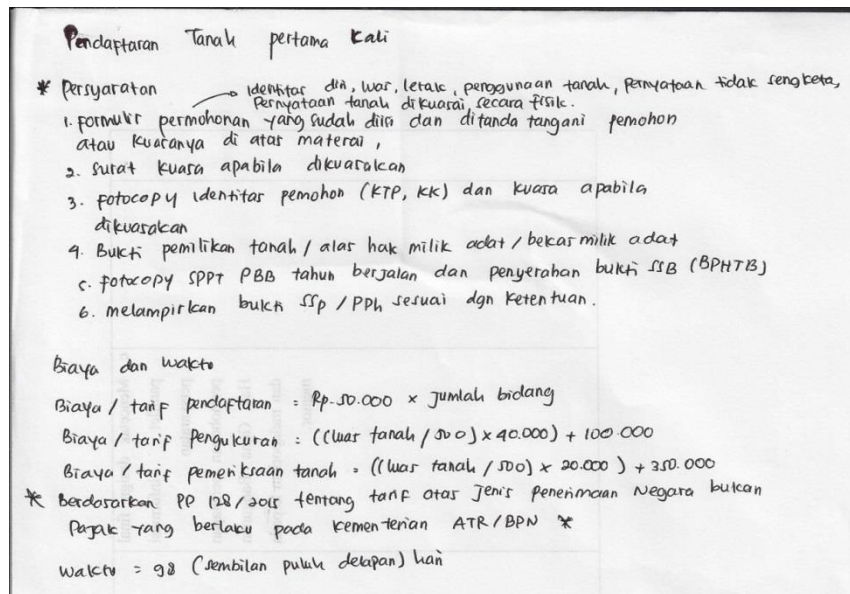 Pendaftaran Tanah pertama kali
* Persyaratan
Identitas diri, luas, letak, penggunaan tanah, pernyataan tidak sengketa,
Pernyataan tanah dikuasai secara fisik.
1. formulir permohonan yang sudah diisi dan ditanda tangani pemohon
atau kuasanya di atas materai,
2. surat kuasa apabila dikuasakan
3. fotocopy identitas pemohon (KTP, KK) dan kuasa apabila
dikuasakan
4. Bukti pemilikan tanah / alas hak milik adat / bekas milik adat
5. fotocopy SPPT PBB tahun berjalan dan penyerahan bukti SSB (BPHTB)
6. melampirkan bukti SSP / PPh sesuai dgn ketentuan.
Biaya dan waktu
Biaya / tarif pendaftaran = Rp. 50.000 x Jumlah bidang
Biaya / tarif Pengukuran = ((luas tanah / 500) x 40.000) + 100.000
Biaya / tarif pemeriksaan tanah = ((luas tanah / 500) x 20.000) + 350.000
* Berdasarkan PP 128/2015 tentang tarif atas Jenis Penerimaan Negara bukan
Pajak yang berlaku pada kementerian ATR/BPN *
waktu = 98 (sembilan puluh delapan) hari